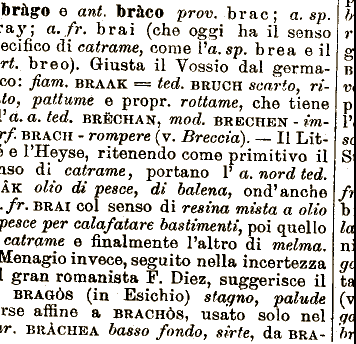 bràgo e ant. bràco prov. brac; a. sp.
ray; a. fr. brai (che oggi ha il senso
ecifico di catrame, come l'a. sp. brea e il
rt. breo). Giusta il Vossio dal germa-
co: fiam. BRAAK = ted. BRUCH scarto, ri-
to, pattume e propr. rottame, che tiene
l'a. a. ted. BRËCHAN, mod. BRECHEN - im-
rf. BRACH - rompere (v. Breccia). — Il Lit-
é e l'Heyse, ritenendo come primitivo il
nso di catrame, portano l' a. nord ted.
ÀK olio di pesce, di balena, ond'anche
. fr. BRAI col senso di resina mista a olio
pesce per calafatare bastimenti, poi quello
catrame e finalmente l'altro di melma.
Menagio invece, seguito nella incertezza
l gran romanista F. Diez, suggerisce il
BRAGÒS (in Esichio) stagno, palude
rse affine a BRACHÒS, usato solo nel
ur. BRÀCHEA basso fondo, sirte, da BRA-